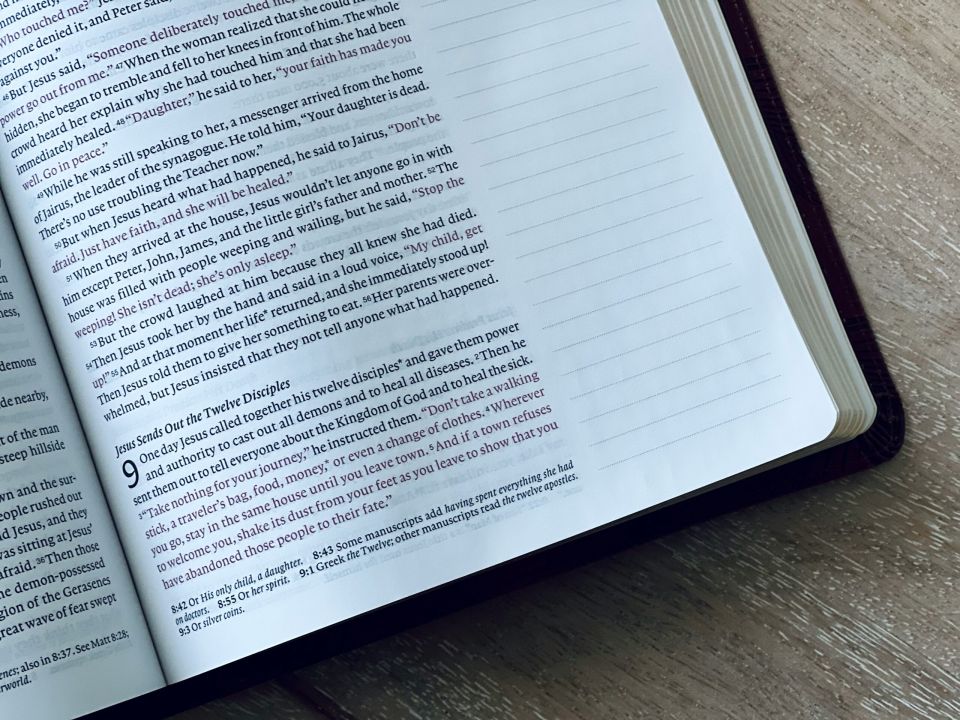 demons
de nearby,
t of the man
steep hillside
wn and the sur-
eople rushed out
d Jesus, and they
was sitting at Jesus'
afraid. 36Then those
e demon-possessed
gion of the Gerasenes
reat wave of fear swept
enes; also in 8:37. See Matt 8:28;
erworld.
Who touched me?"
eryone denied it, and Peter said,
against you."
46But Jesus said, "Someone deliberately touched me,
power go out from me." 47When the woman realized that she could
hidden, she began to tremble and fell to her knees in front of him. The whole
crowd heard her explain why she had touched him and that she had been
immediately healed. 48"Daughter," he said to her, "your faith has made you
well. Go in peace."
49While he was still speaking to her, a messenger arrived from the home
of Jairus, the leader of the synagogue. He told him, "Your daughter is dead.
There's no use troubling the Teacher now."
50But when Jesus heard what had happened, he said to Jairus, "Don't be
afraid. Just have faith, and she will be healed."
51When they arrived at the house, Jesus wouldn't let anyone go in with
him except Peter, John, James, and the little girl's father and mother. 52The
house was filled with people weeping and wailing, but he said, "Stop the
weeping! She isn't dead; she's only asleep."
53But the crowd laughed at him because they all knew she had died.
54Then Jesus took her by the hand and said in a loud voice, "My child, get
up!" 55And at that moment her life* returned, and she immediately stood up!
Then Jesus told them to give her something to eat. 56Her parents were over-
whelmed, but Jesus insisted that they not tell anyone what had happened.
Jesus Sends Out the Twelve Disciples
9 One day Jesus called together his twelve disciples* and gave them power
and authority to cast out all demons and to heal all diseases. 2Then he
sent them out to tell everyone about the Kingdom of God and to heal the sick.
3"Take nothing for your journey," he instructed them. "Don't take a walking
stick, a traveler's bag, food, money,* or even a change of clothes. 4Wherever
you go, stay in the same house until you leave town. 5And if a town refuses
to welcome you, shake its dust from your feet as you leave to show that you
have abandoned those people to their fate."
8:42 Or His only child, a daughter. 8:43 Some manuscripts add having spent everything she had
on doctors. 8:55 Or her spirit. 9:1 Greek the Twelve; other manuscripts read the twelve apostles.
9:3 Or silver coins.